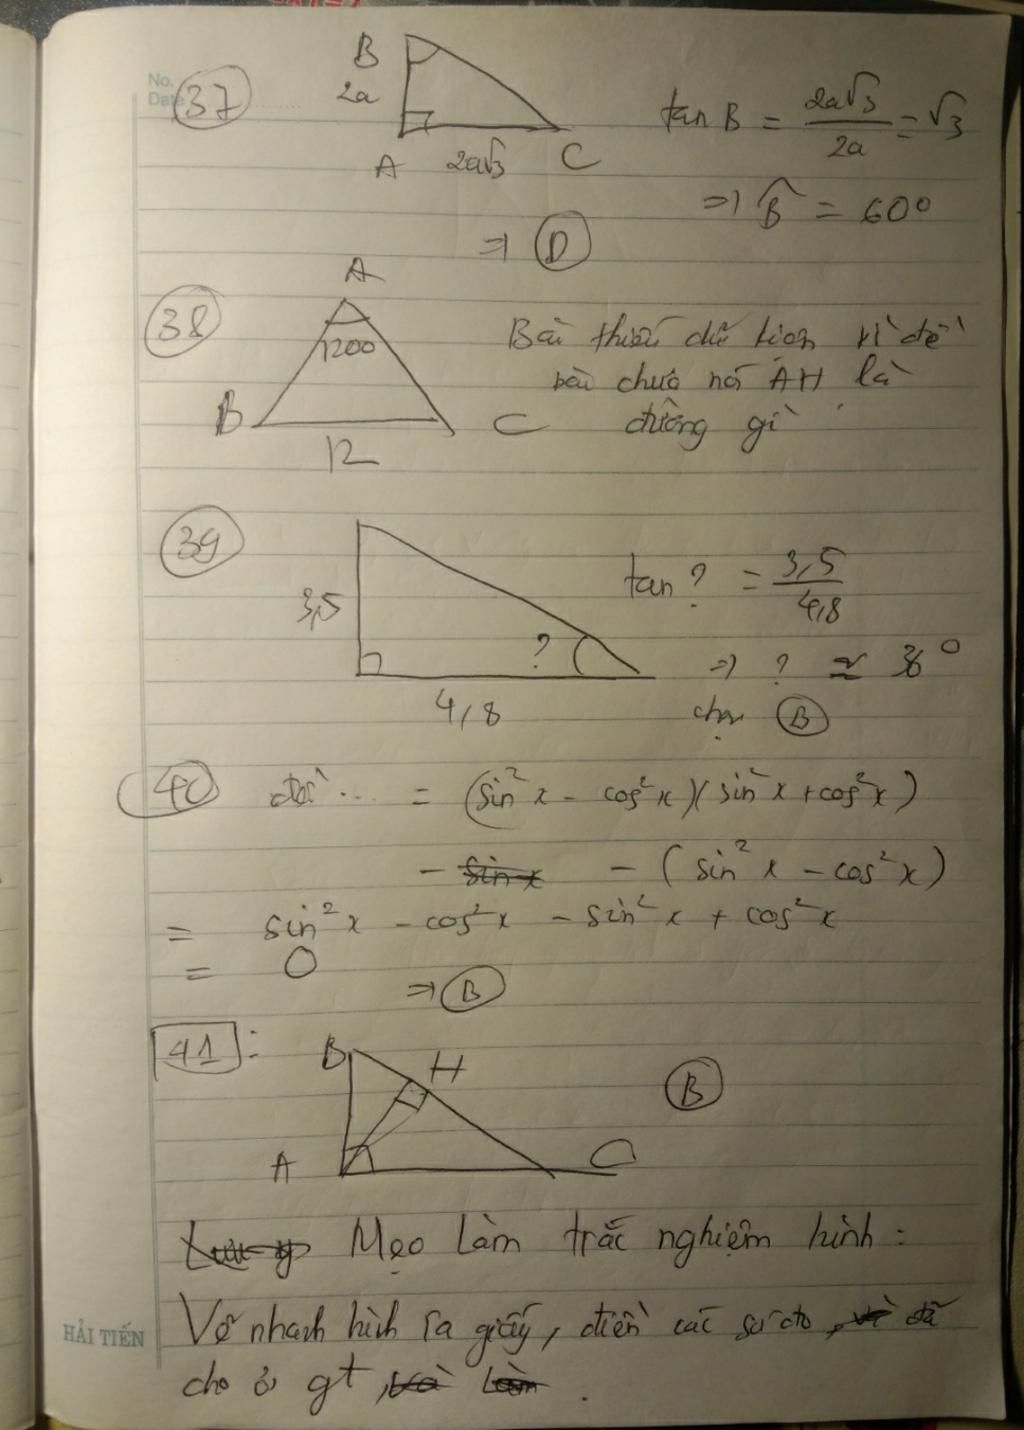 No.
Date
37
B
2a
A 2a√3 C
tan B = 2a√3 / 2a = √3
=> B̂ = 60°
=> D
38
A
120°
B C
12
Bài thiếu dữ kiện vì đề
bài chưa nói AH là
đường gì
39
3,5
?
4,8
tan ? = 3,5 / 4,8
=> ? ≈ 36°
chọn B
40 ... = (sin²x - cos²x)(sin²x + cos²x)
- sin x - (sin²x - cos²x)
= sin²x - cos²x - sin²x + cos²x
= 0
=> B
41:
B H
A C
B
Mẹo làm trắc nghiệm hình:
Vẽ nhanh hình ra giấy, điền các số đo, và đã
cho ở gt, và làm.
HẢI TIẾN